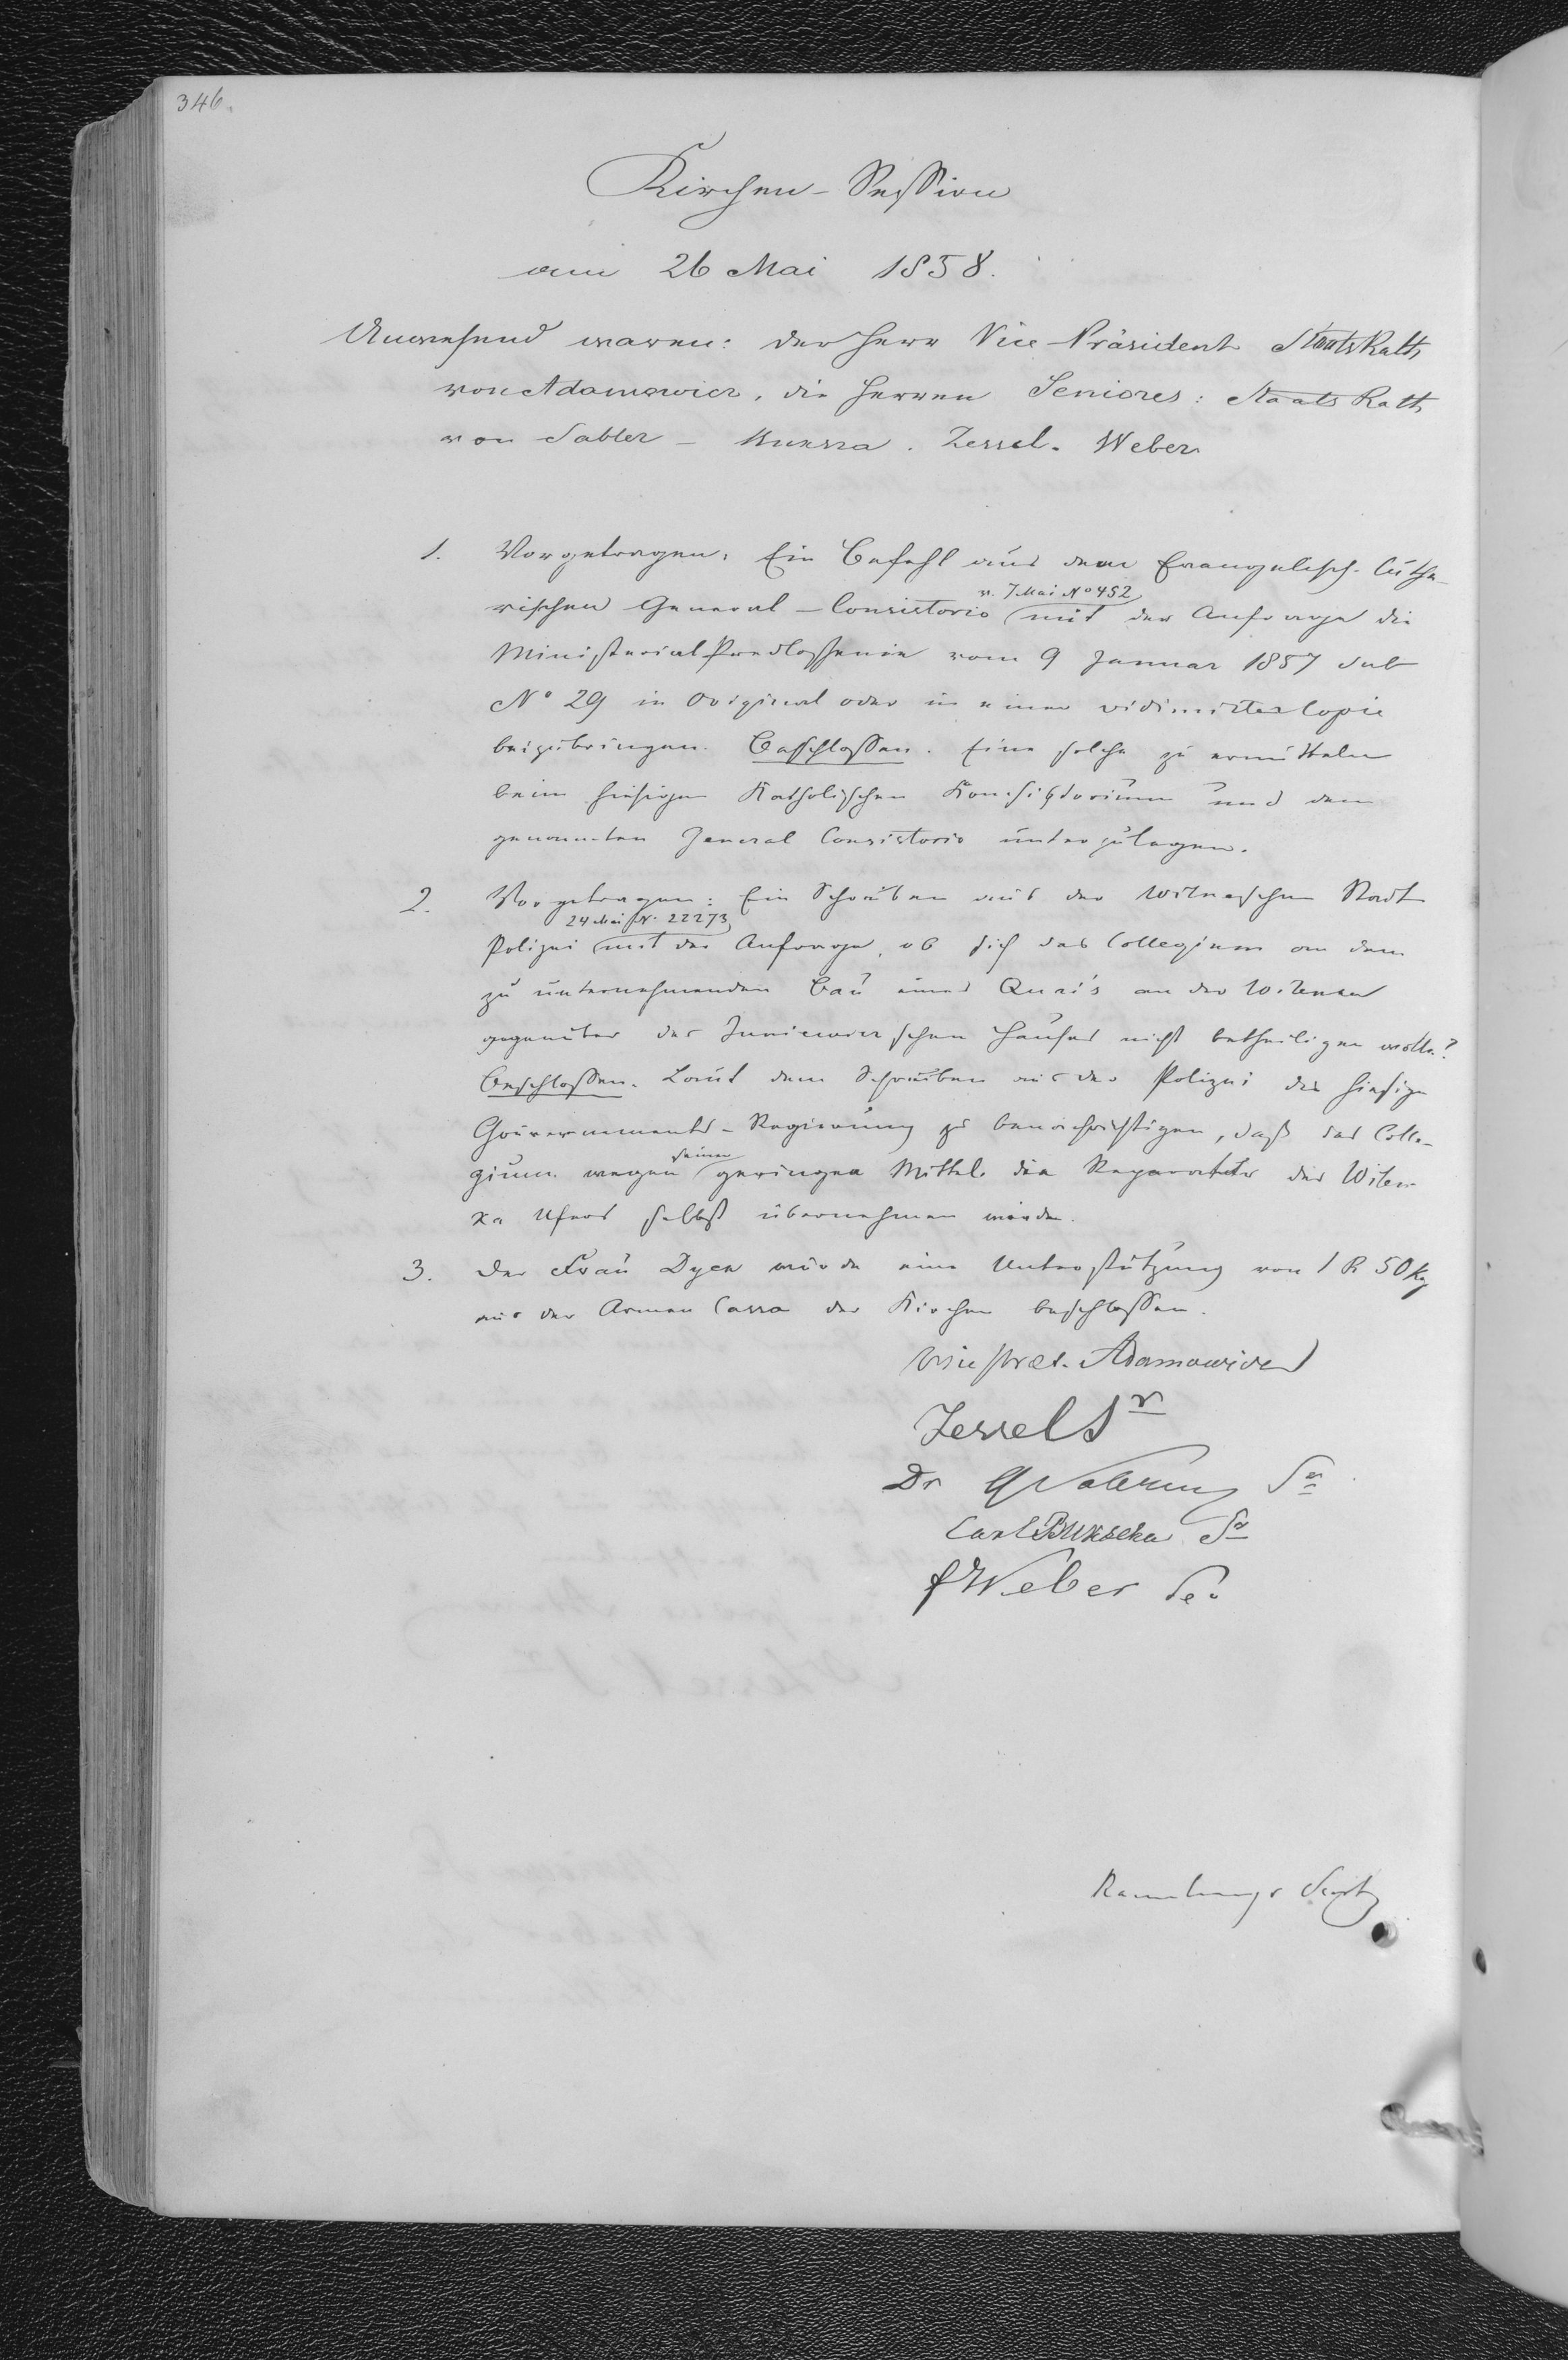 346.
Kirchen-Session
am 26 Mai 1858.
Anwesend waren: der Herr Vice-Präsident StaatsRath
von Adamowicz, die Herren Seniores: Staats Rath
von Sabler - Buksza. Zessel. Weber
1. Vorgetragen: Ein Befehl aus dem Evangelisch-luthe-
v. 7 Mai No 452
rischen General-Consistorio mit der Anfrage die
Ministerial Predloschenie vom 9 Januar 1857 sub
No 29 in Original oder in einer vidimirter Copie
beizubringen. Beschlossen. Eine solche zu ermitteln
beim hiesigen Katholischen Konsistorium und dem
genannten General Consistorio unterzulegen.
2. Vorgetragen: Ein Schreiben aus der Wilnaschen Stadt
24 Mai N. 22273
Polizei mit der Anfrage, ob sich das Collegium an dem
zu unternehmenden Bau eines Quai's an der Wilenka
gegenüber des schen Hauses nicht betheiligen wolle?
Beschlossen. Laut dem Schreiben aus der Polizei der hiesigen
Gouvernements-Regierung zu benachrichtigen, daß das Colle-
seiner
gium wegen geringen Mittel die Reparatur des Wilen-
ka Ufers selbst übernehmen würde.
3. Der Frau Dyck wurde eine Unterstützung von 1 R 50 Kop
aus der Armen Cassa der Kirchen beschlossen.
Vice praes. Adamowicz
Zessel Sr
Dr Sr
Carl Bukscha Sr
F Weber Se.